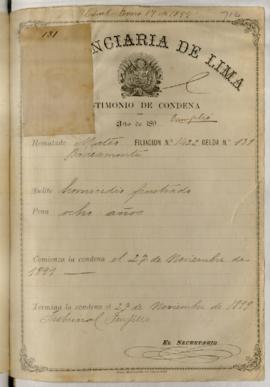 Enero 17 de 1899
181
NCIARIA DE LIMA
STIMONIO DE CONDENA
Año de 189
Cumplió
Rematado Mateo FILIACION N.º 1422 CELDA N.º 131
Bracamonte
Delito homicidio frustrado
Pena ocho años
Comienza la condena el 27 de Noviembre de
1891
Termina la condena el 27 de Noviembre de 1899
Tribunal Trujillo
EL SECRETARIO